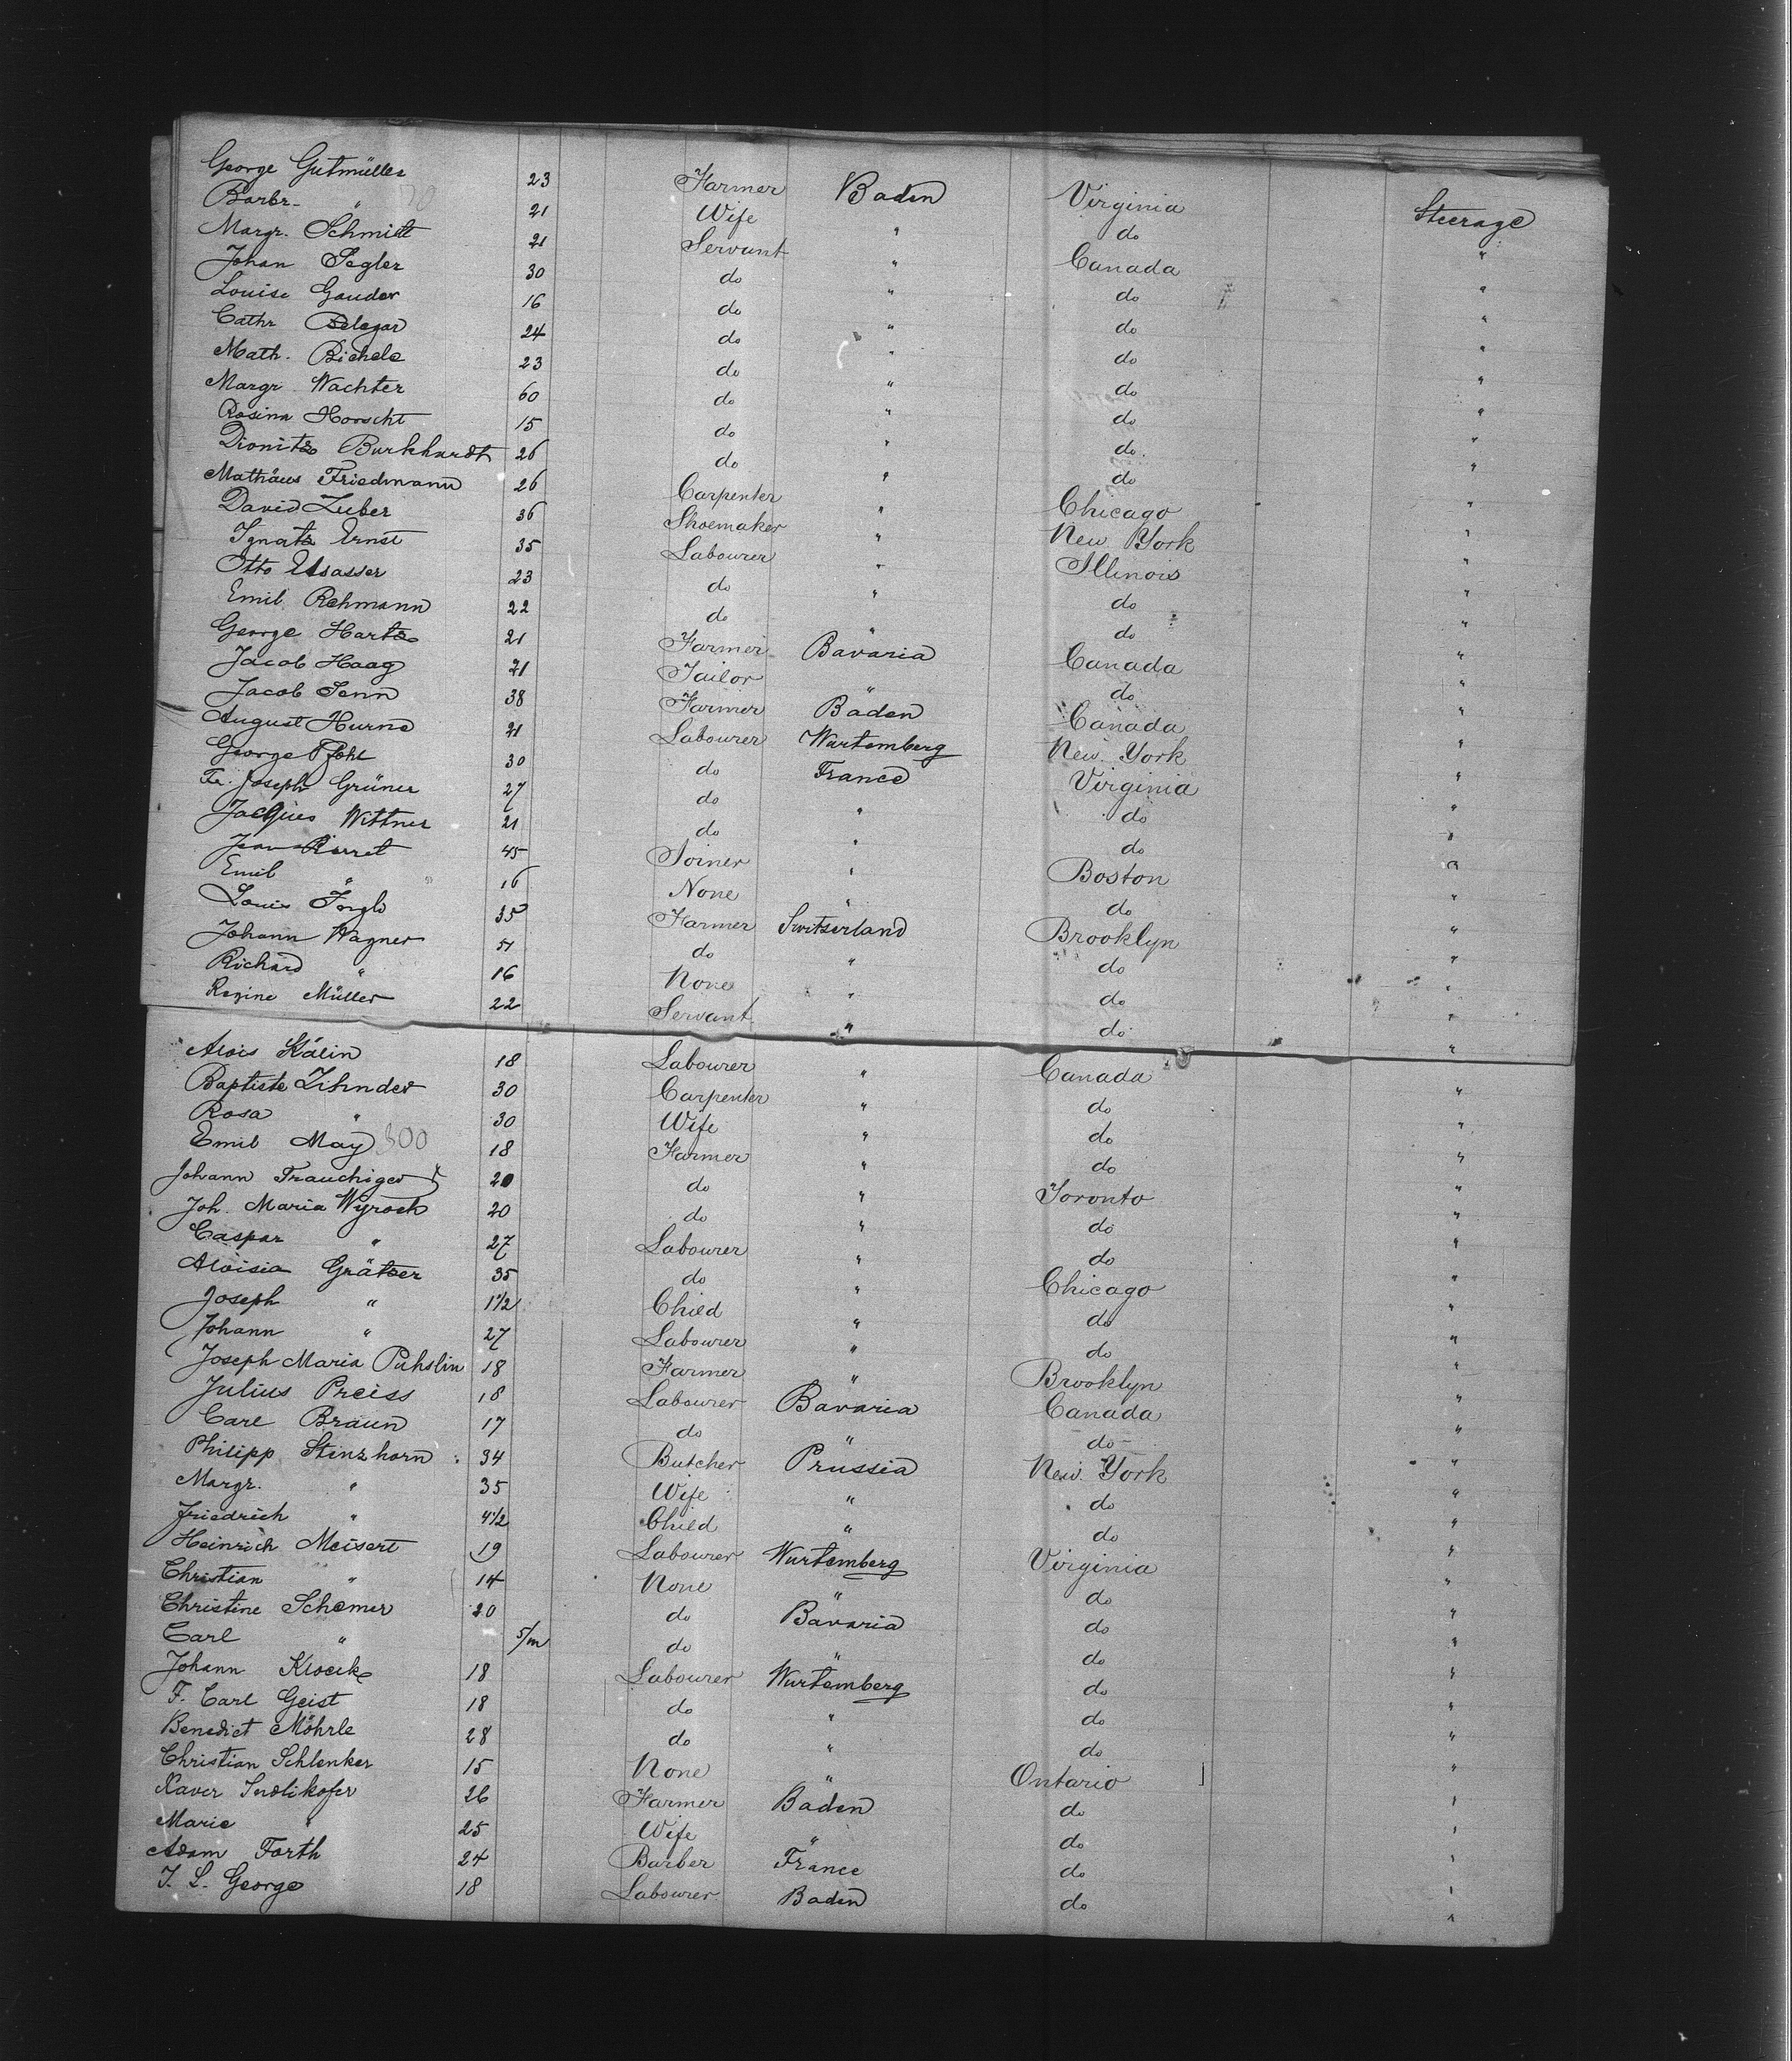 George Gutmüller 23 Farmer Baden Virginia Steerage
Barbr. " 21 Wife " do "
Margr. Schmidt 21 Servant " Canada "
Johan Segler 30 do " do "
Louise Gauder 16 do " do "
Cathr 24 do " do "
Math. Bichele 23 do " do "
Margr Wachter 60 do " do "
Rosina Horscht 15 do " do "
Dionitz Burkhardt 26 do " do "
Mathäus Friedmann 26 Carpenter " Chicago "
David Zuber 36 Shoemaker " New York "
Ignatz Ernst 35 Labourer " Illinois "
Otto Elsasser 23 do " do "
Emil Rehmann 22 do " do "
George Hartz 21 Farmer Bavaria Canada "
Jacob Haag 21 Tailor " do "
Jacob Senn 38 Farmer Baden Canada "
August Hurne 21 Labourer Wurtemberg New York "
George Pfohl 30 do France Virginia "
Fr. Joseph Grüner 27 do " do "
Jacques Wittner 21 do " do "
Jean Pierret 45 Joiner " Boston "
Emil " 16 None " do "
Louis 35 Farmer Switserland Brooklyn "
Johann Wagner 51 do " do "
Richard " 16 None " do "
Regine Müller 22 Servant " do "
Alois Kälin 18 Labourer " Canada "
Baptiste Zihnder 30 Carpenter " do "
Rosa " 30 Wife " do "
Emil May 300 18 Farmer " do "
Johann Trauchiger 20 do " Toronto "
Joh. Maria Wyrsch 20 do " do "
Caspar " 27 Labourer " do "
Aloisia Grätzer 35 do " Chicago "
Joseph " 1 1/2 Child " do "
Johann " 27 Labourer " do "
Joseph Maria Puhslin 18 Farmer " Brooklyn "
Julius Preiss 18 Labourer Bavaria Canada "
Carl Braun 17 do " do "
Philipp Stenzhorn 34 Butcher Prussia New York "
Margr. " 35 Wife " do "
Friedrich " 4 1/2 Child " do "
Heinrich Meisert 19 Labourer Wurtemberg Virginia "
Christian " 14 None " do "
Christine Schemer 20 do Bavaria do "
Carl " 5/m do " do "
Johann 18 Labourer Wurtemberg do "
F. Carl Geist 18 do " do "
Benedict Möhrle 28 do " do "
Christian Schlenker 15 None " Ontario "
Xaver Indlikofer 26 Farmer Baden do "
Marie " 25 Wife " do "
Adam Forth 24 Barber France do "
J. L. George 18 Labourer Baden do "